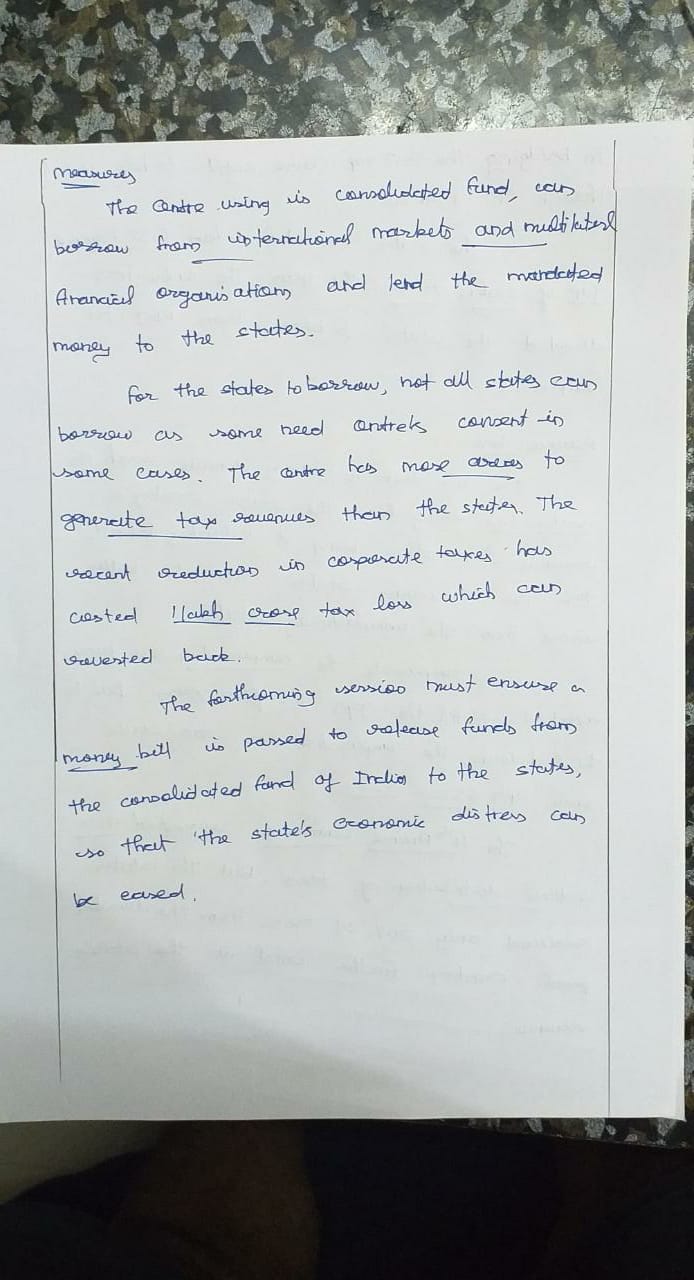 Measures
The Centre using is consolidated fund, can
borrow from international markets and multilateral
financial organisations and lend the mandated
money to the states.
For the states to borrow, not all states can
borrow as some need centre's consent in
some cases. The centre has more areas to
generate tax revenues than the states. The
recent reduction in corporate taxes has
costed 1 lakh crore tax loss which can
reverted back.
The forthcoming session must ensure a
money bill is passed to release funds from
the consolidated fund of India to the states,
so that the state's economic distress can
be eased.